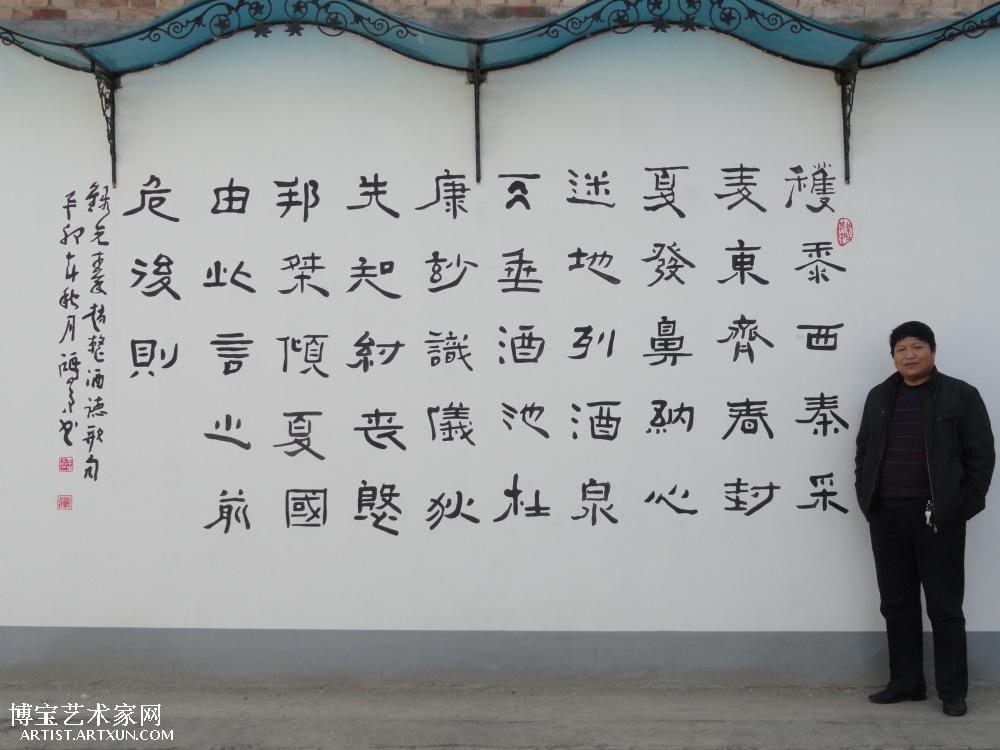 穫黍西秦采
麦東齊春封
夏發鼻納心
迷地列酒泉
天垂酒池杜
康妙識儀狄
先知紂丧慇
邦桀傾夏國
由此言之前
危後則
錄趙整酒德歌句
辛卯年秋月書
博宝艺术家网
ARTIST.ARTXUN.COM